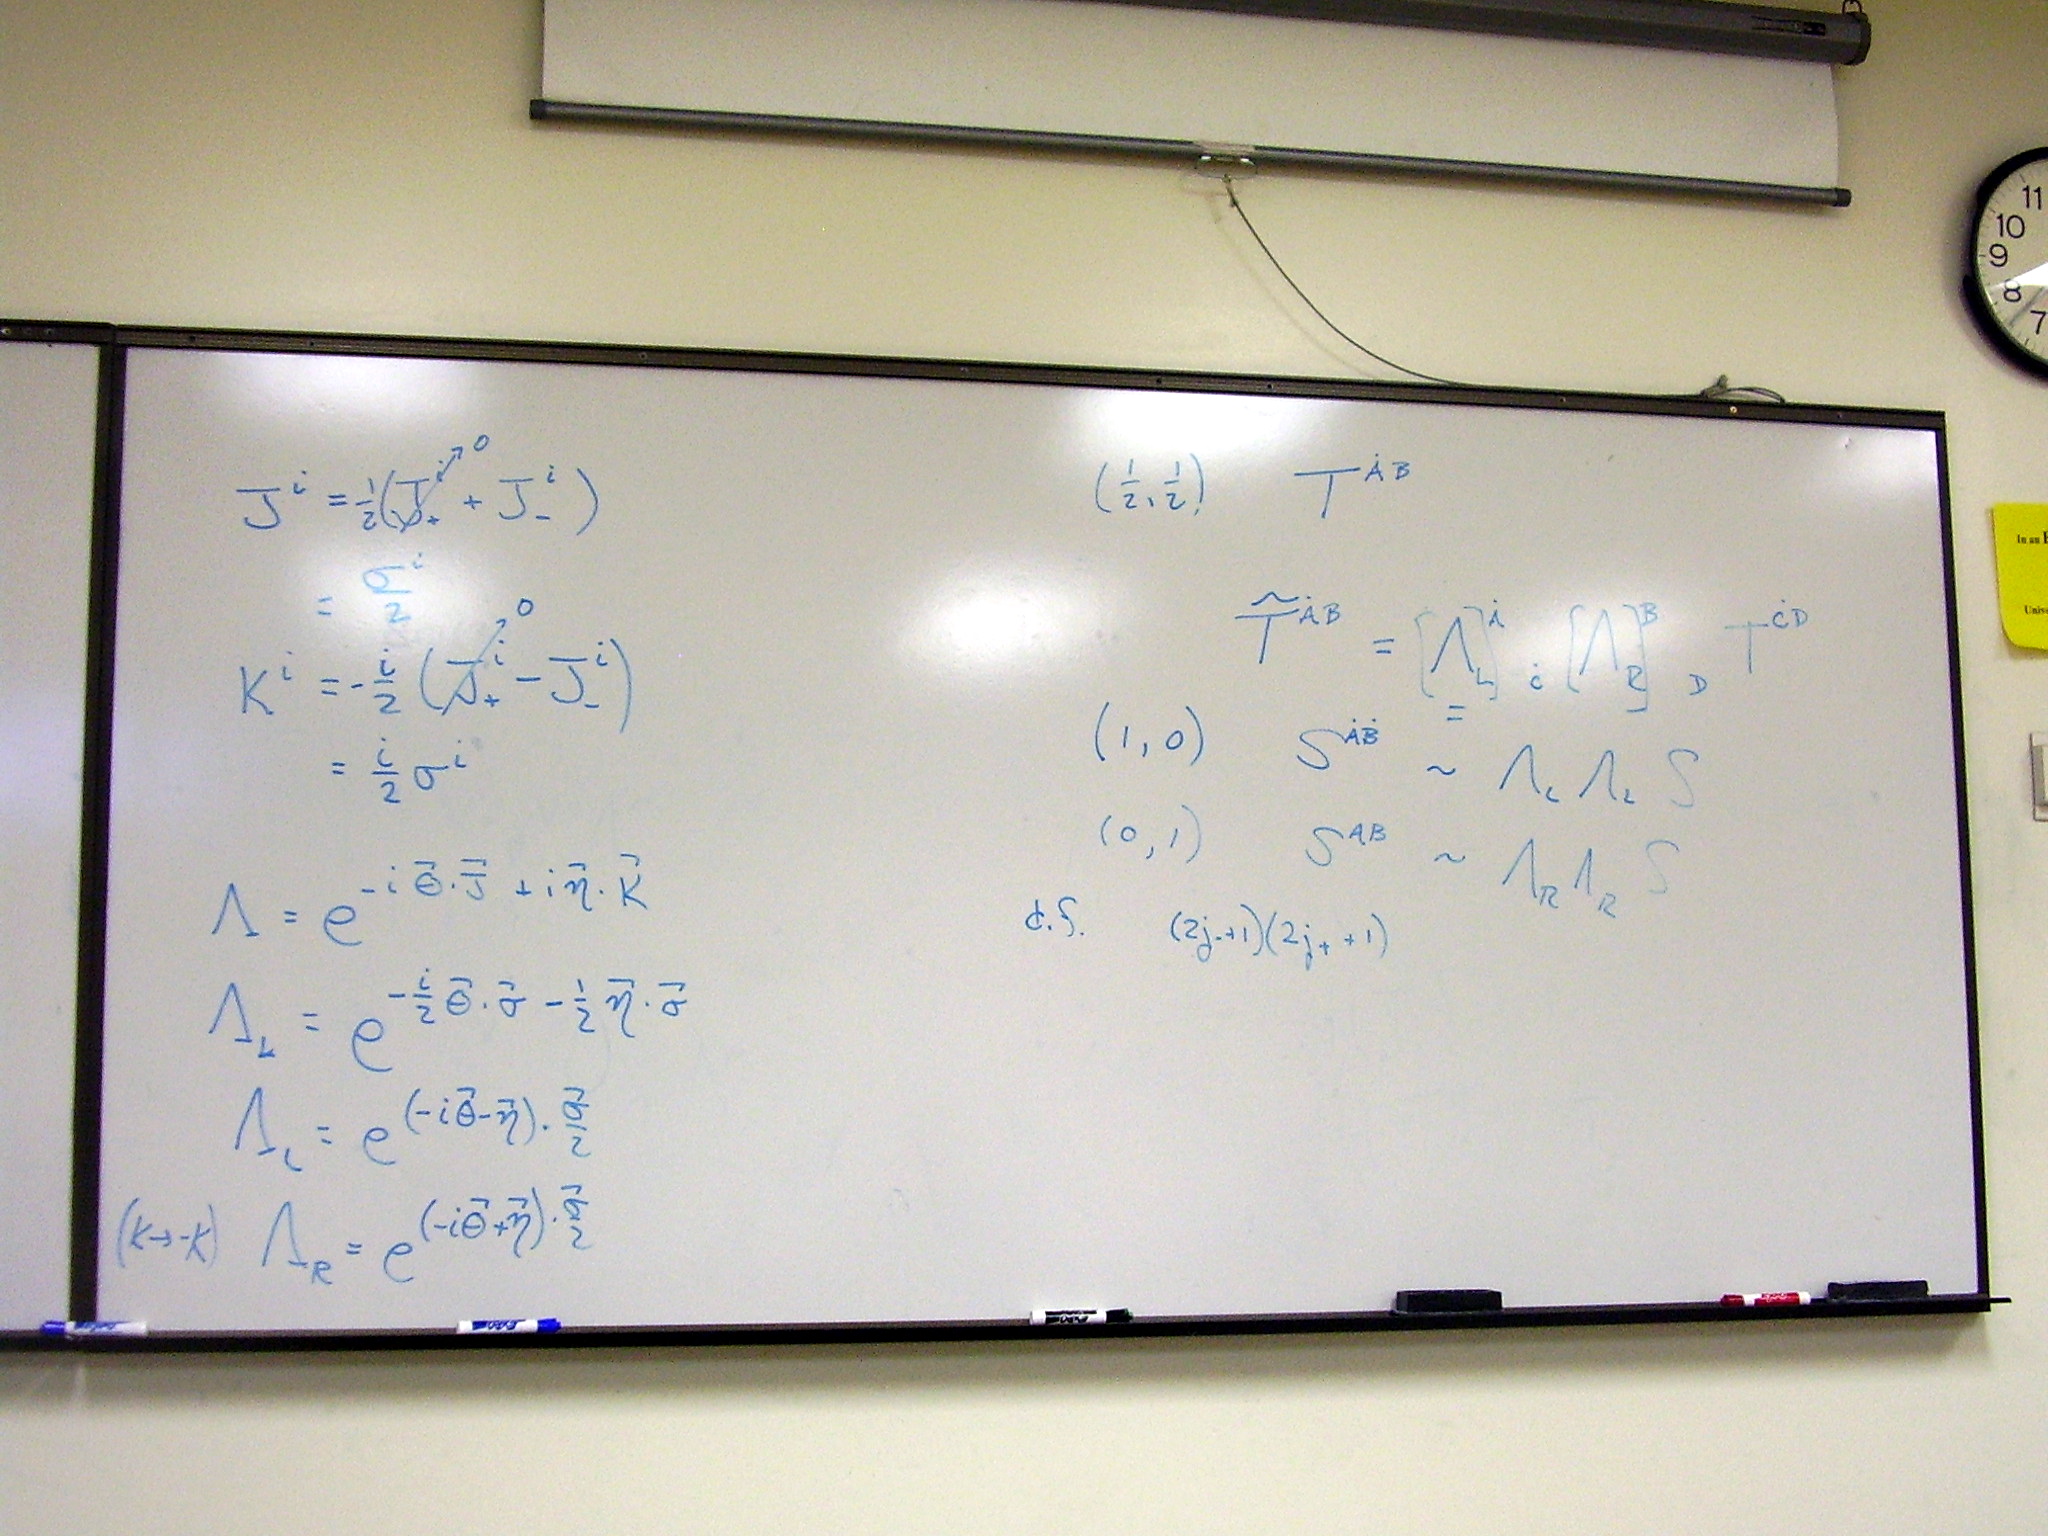 J^i = 1/2 (J_+^i + J_-^i) → 0
= σ^i/2
K^i = -i/2 (J_+^i - J_-^i) → 0
= i/2 σ^i
Λ = e^{-i θ⃗·J⃗ + i η⃗·K⃗}
Λ_L = e^{-i/2 θ⃗·σ⃗ - 1/2 η⃗·σ⃗}
Λ_L = e^{(-iθ⃗-η⃗)·σ⃗/2}
(K→-K) Λ_R = e^{(-iθ⃗+η⃗)·σ⃗/2}
(1/2, 1/2) T^{ȦB}
T̃^{ȦB} = [Λ_L]^Ȧ_Ċ [Λ_R]^B_D T^{ĊD}
=
(1, 0) S^{ȦḂ} ~ Λ_L Λ_L S
(0, 1) S^{AB} ~ Λ_R Λ_R S
d.f. (2j_-+1)(2j_++1)
11
10
9
8
7
In an
Unive